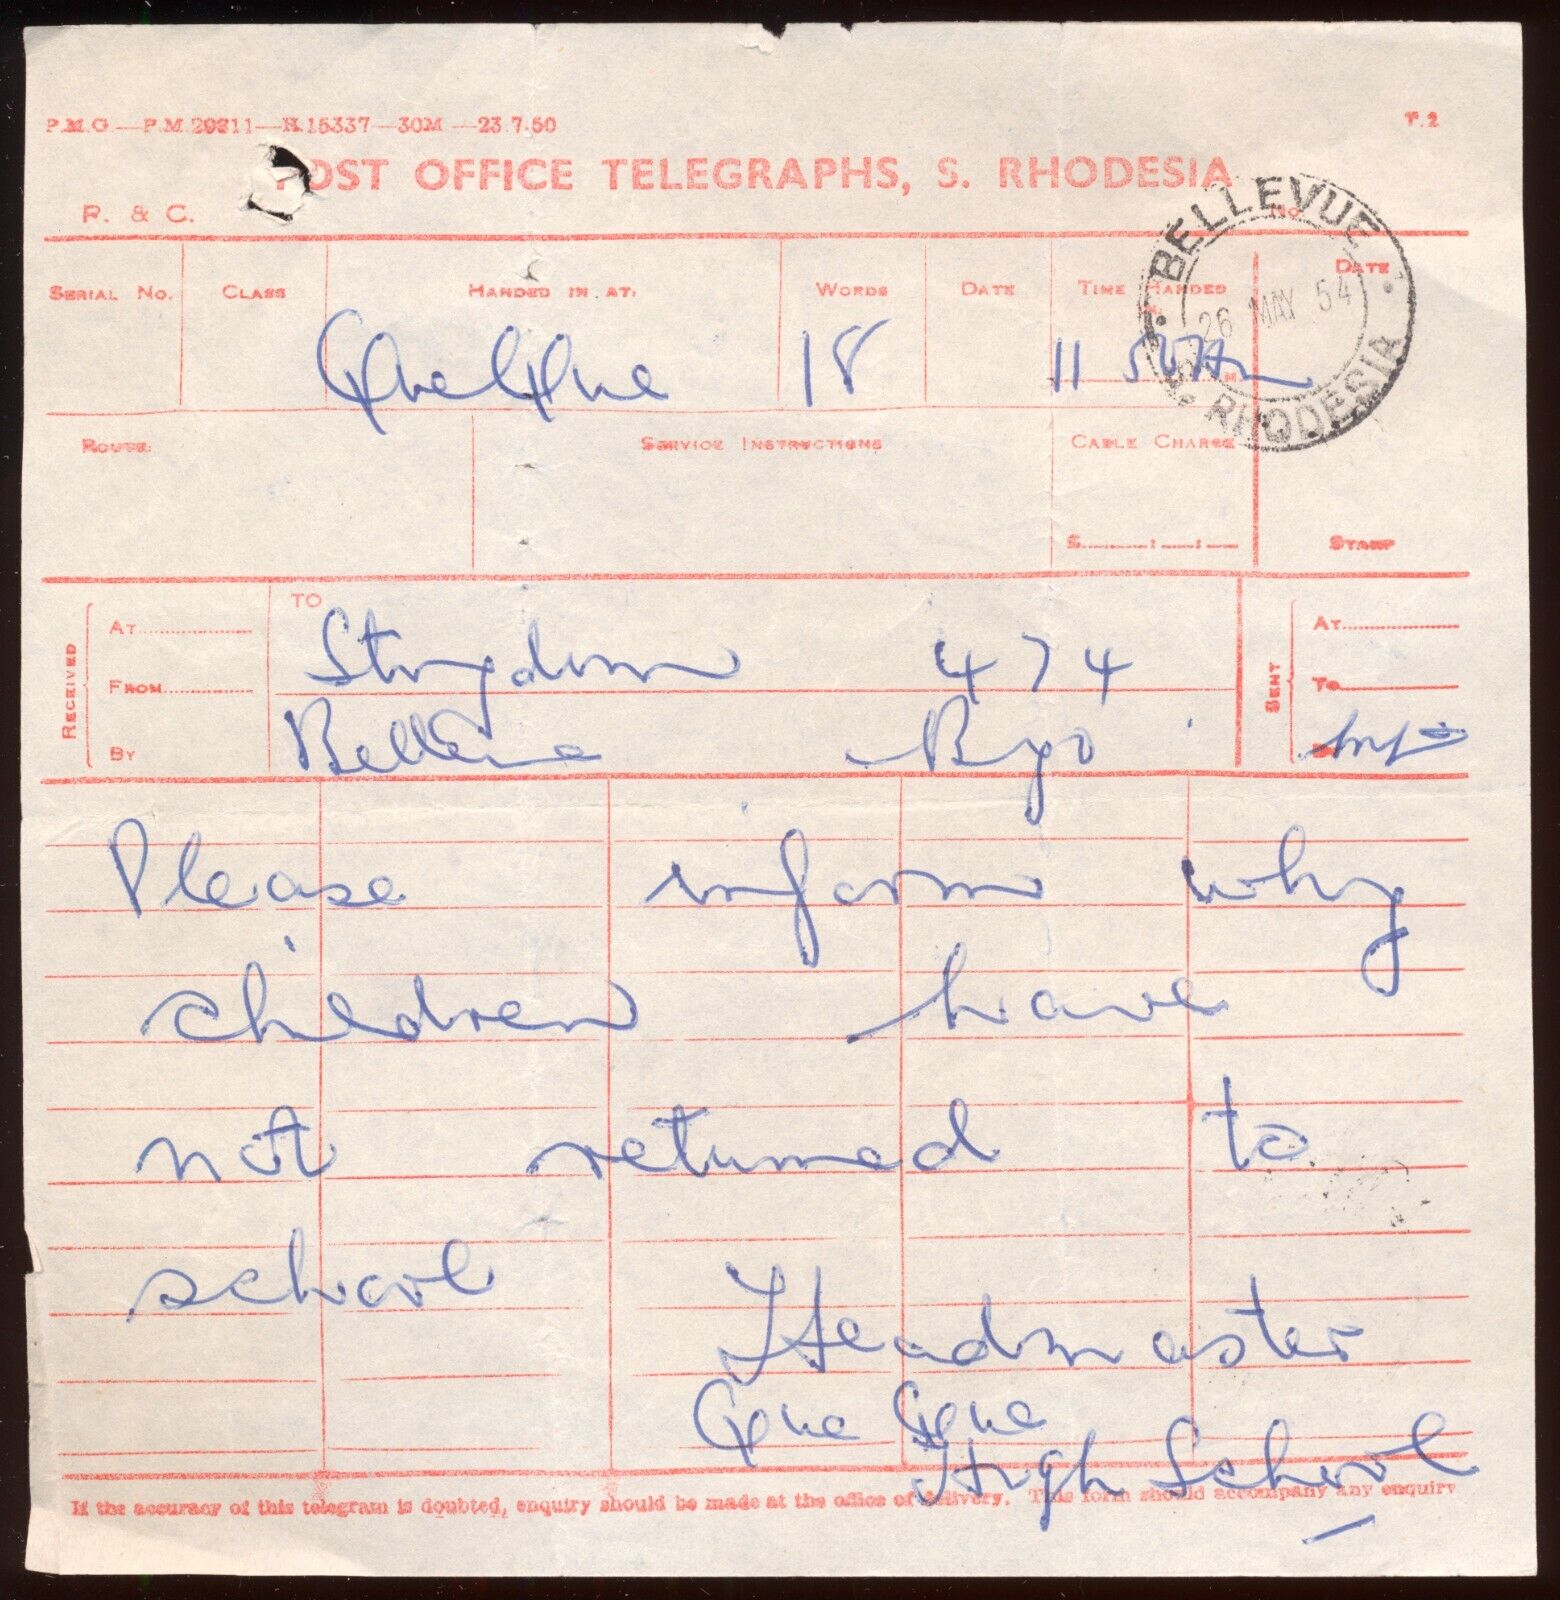 P.M.G.—P.M.29211—H.15337—30M—23.7.50
T.2
POST OFFICE TELEGRAPHS, S. RHODESIA
P. & C.
No.
BELLEVUE
26 MAY 54
S. RHODESIA
SERIAL NO. CLASS HANDED IN AT: WORDS DATE TIME HANDED DATE
QueQue 18 11
ROUTE: SERVICE INSTRUCTIONS CABLE CHARGE
£ : : STAMP
RECEIVED
AT
FROM
BY
TO
Strydom 474
Bellevue Byo
SENT
AT
TO
Please inform why
children have
not returned to
school
Headmaster
Que Que
High School
If the accuracy of this telegram is doubted, enquiry should be made at the office of delivery. This form should accompany any enquiry